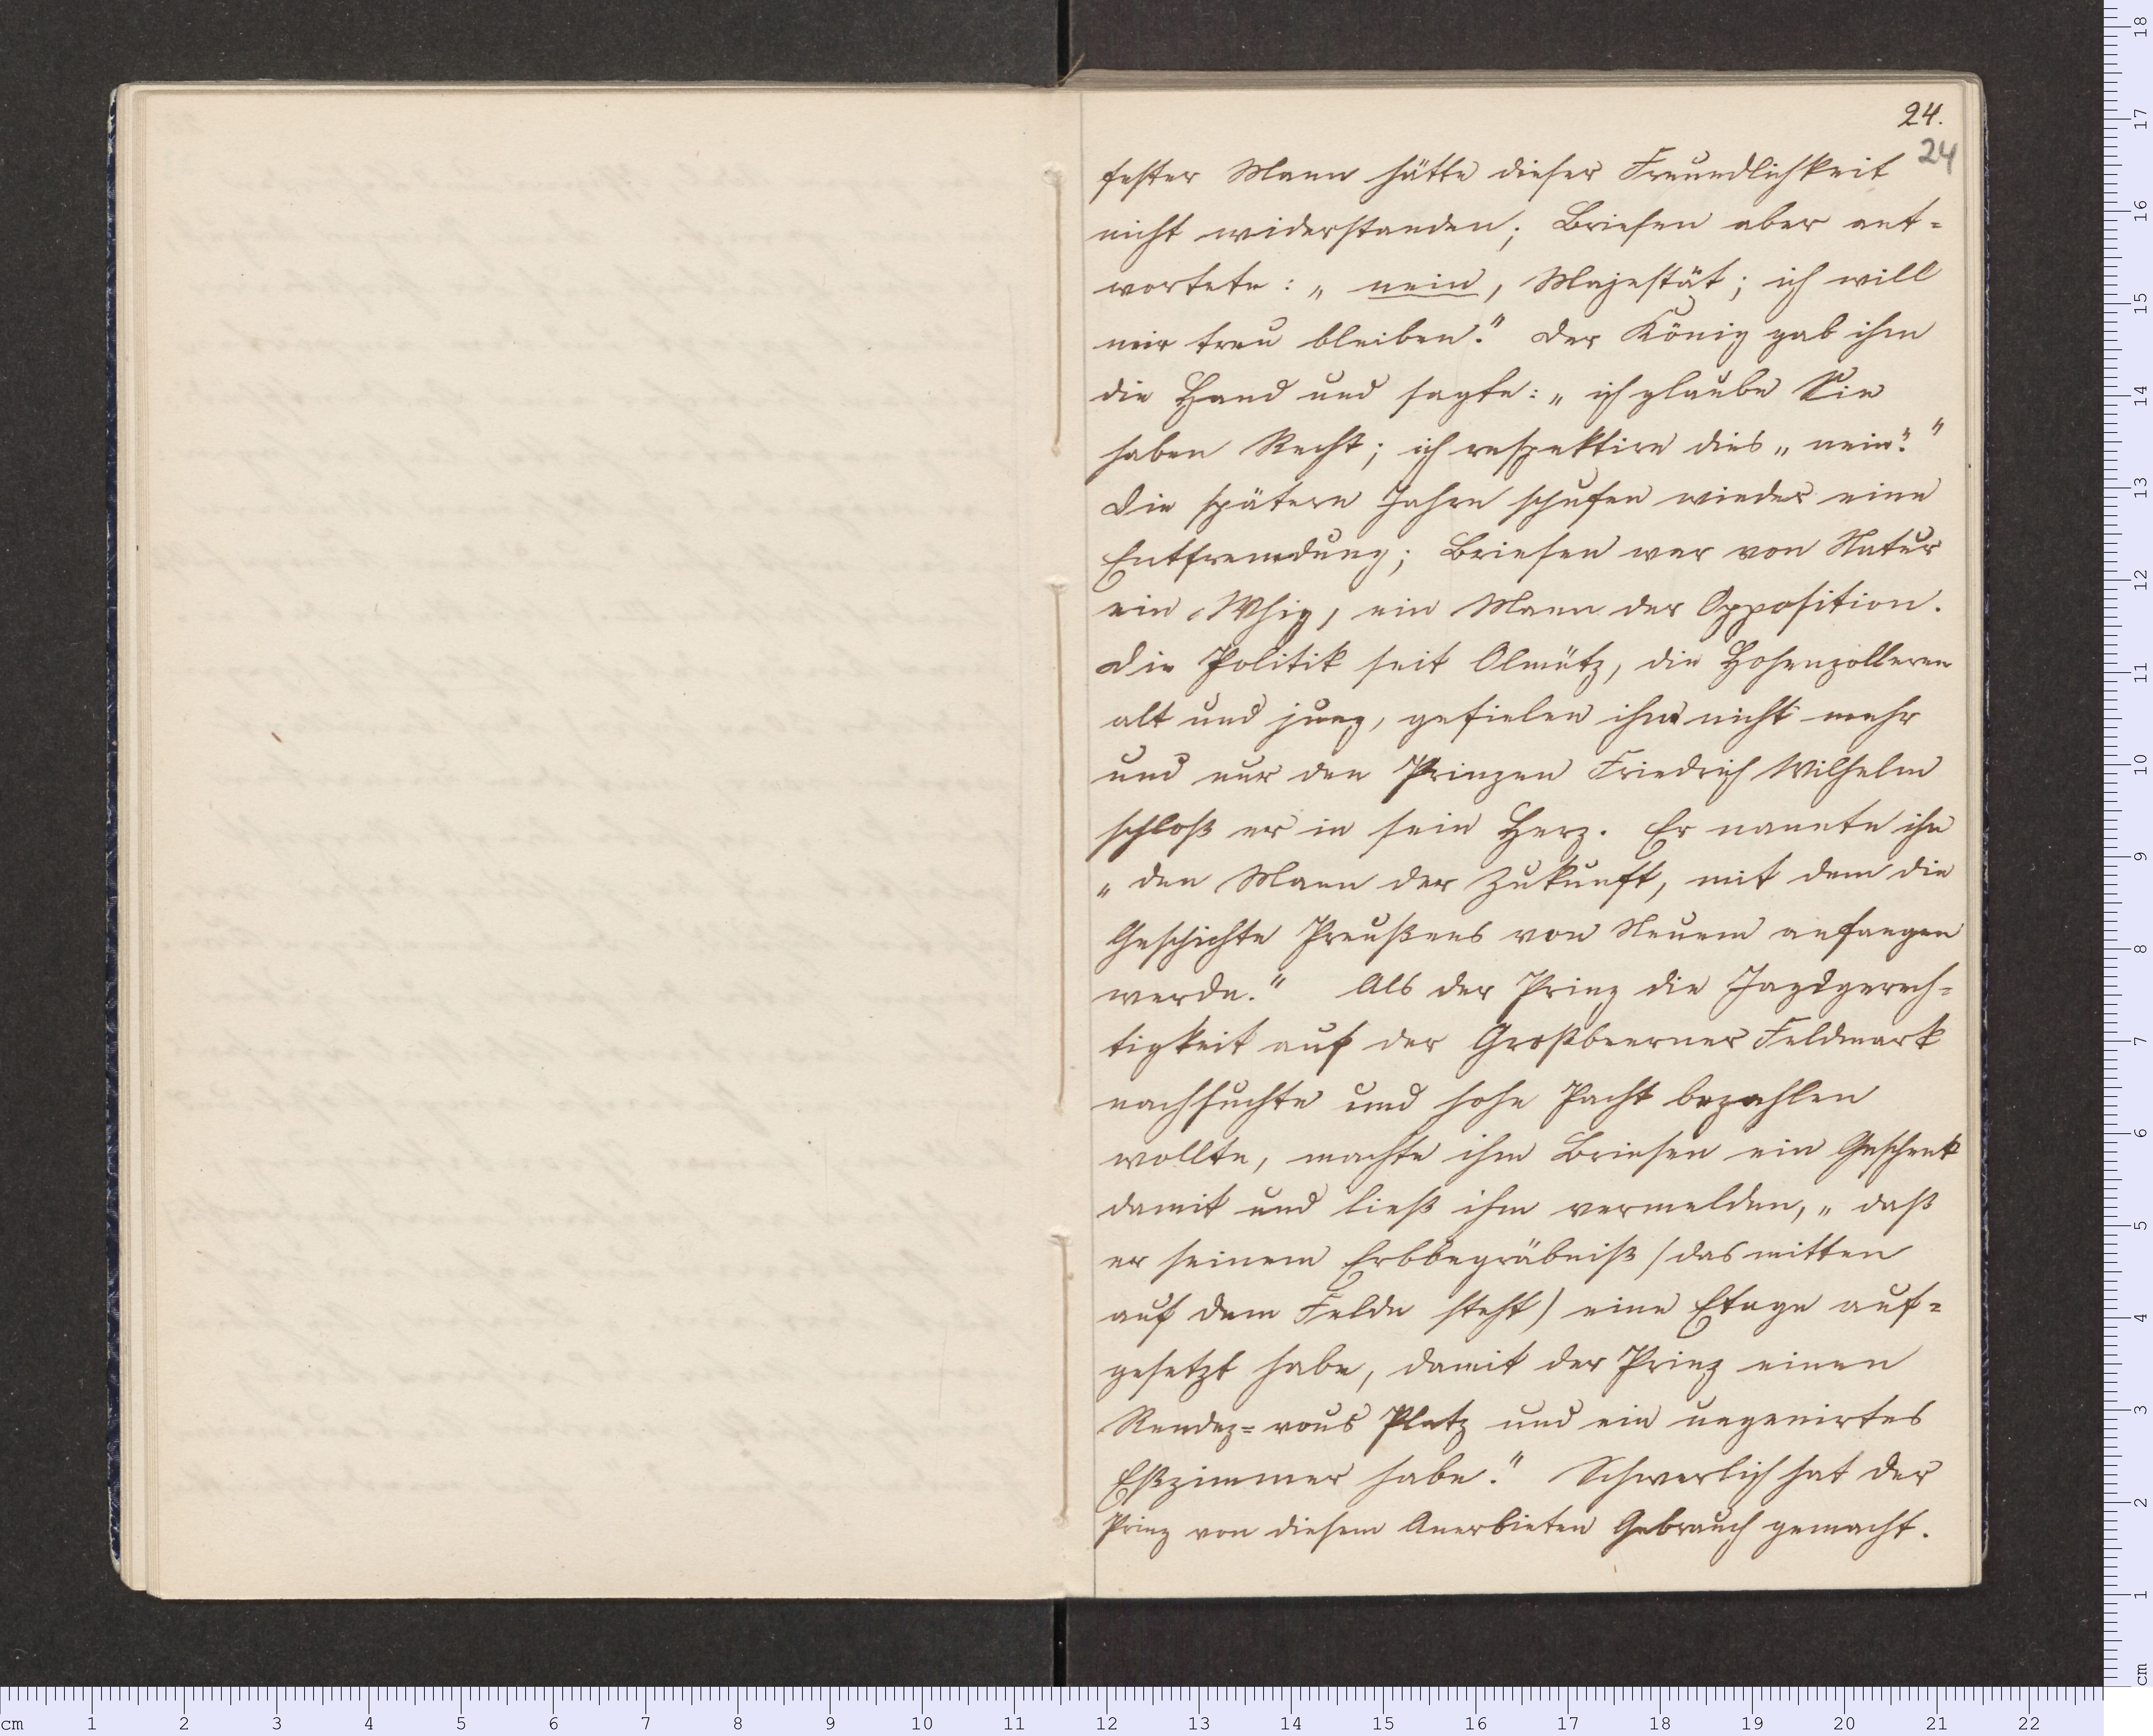 24.
24
fester Mann hätte dieser Freundlichkeit
nicht widerstanden; Briesen aber ant-
wortete: „nein, Majestät; ich will
mir treu bleiben.“ Der König gab ihm
die Hand und sagte: „ich glaube Sie
haben Recht; ich respektire dies „nein“.“
Die spätern Jahre schufen wieder eine
Entfremdung; Briesen war von Natur
ein Whig, ein Mann der Opposition.
Die Politik seit Olmütz, die Hohenzolleren
alt und jung, gefielen ihm nicht mehr
und nur den Prinzen Friedrich Wilhelm
schloß er in sein Herz. Er nannte ihn
„den Mann der Zukunft, mit dem die
Geschichte Preußens von Neuem anfangen
werde.“ Als der Prinz die Jagdgerech-
tigkeit auf der Großbeerner Feldmark
nachsuchte und hohe Pacht bezahlen
wollte, machte ihm Briesen ein Geschenk
damit und ließ ihm vermelden, „daß
er seinem Erbbegräbniß (das mitten
auf dem Felde steht) eine Etage auf-
gesetzt habe, damit der Prinz einen
Rendez-vous Platz und ein ungenirtes
Eßzimmer habe.“ Schwerlich hat der
Prinz von diesem Anerbieten Gebrauch gemacht.
cm 1 2 3 4 5 6 7 8 9 10 11 12 13 14 15 16 17 18 19 20 21 22
cm 1 2 3 4 5 6 7 8 9 10 11 12 13 14 15 16 17 18